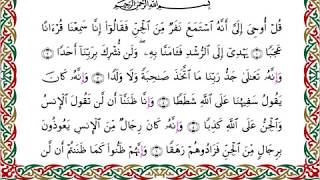 بِسْمِ ٱللَّهِ ٱلرَّحْمَٰنِ ٱلرَّحِيمِ
قُلْ أُوحِىَ إِلَىَّ أَنَّهُ ٱسْتَمَعَ نَفَرٌ مِّنَ ٱلْجِنِّ فَقَالُوٓا۟ إِنَّا سَمِعْنَا قُرْءَانًا
عَجَبًا ۝١ يَهْدِىٓ إِلَى ٱلرُّشْدِ فَـَٔامَنَّا بِهِۦ ۖ وَلَن نُّشْرِكَ بِرَبِّنَآ أَحَدًا ۝٢
وَإِنَّهُۥ تَعَٰلَىٰ جَدُّ رَبِّنَا مَا ٱتَّخَذَ صَٰحِبَةً وَلَا وَلَدًا ۝٣ وَإِنَّهُۥ كَانَ
يَقُولُ سَفِيهُنَا عَلَى ٱللَّهِ شَطَطًا ۝٤ وَإِنَّا ظَنَنَّآ أَن لَّن تَقُولَ ٱلْإِنسُ
وَٱلْجِنُّ عَلَى ٱللَّهِ كَذِبًا ۝٥ وَإِنَّهُۥ كَانَ رِجَالٌ مِّنَ ٱلْإِنسِ يَعُوذُونَ
بِرِجَالٍ مِّنَ ٱلْجِنِّ فَزَادُوهُمْ رَهَقًا ۝٦ وَإِنَّهُمْ ظَنُّوا۟ كَمَا ظَنَنتُمْ أَن لَّن